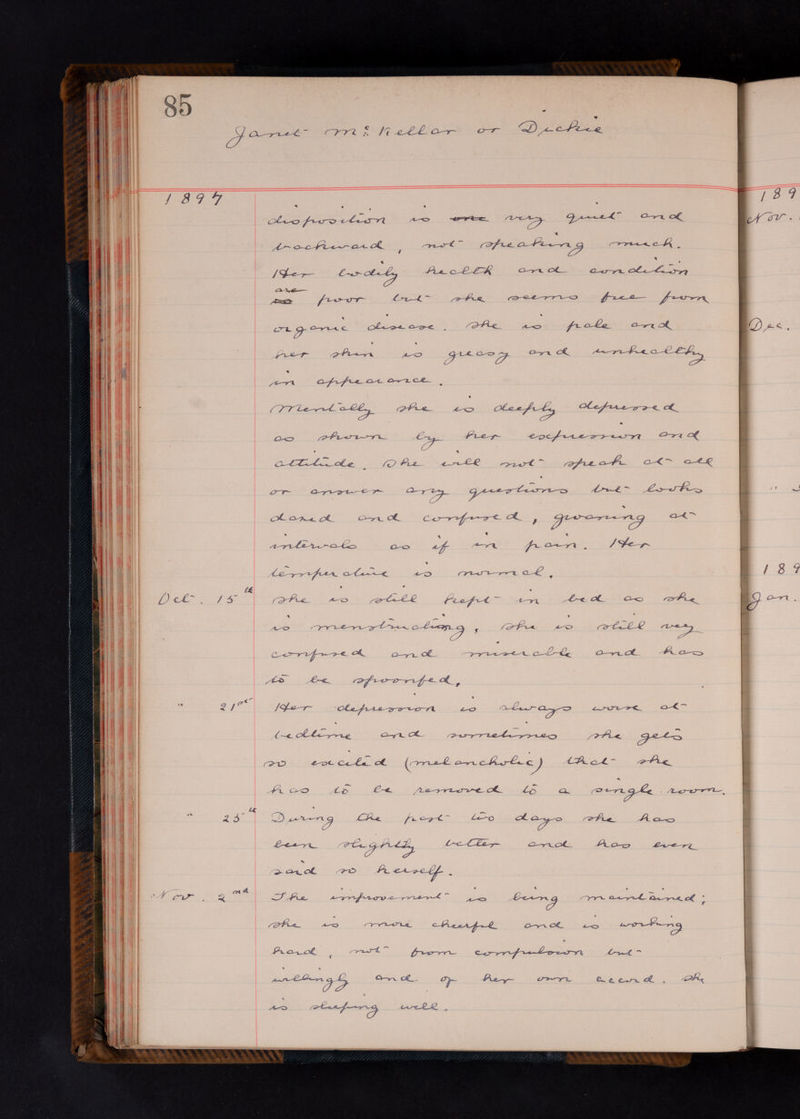 85
Janet McKellar or Dickie
1897
disposition is one very quiet and
backward, not speaking much.
Her bodily health and condition
are
is poor but she seems free from
organic disease. She is pale and
her skin is greasy and unhealthy
in appearance.
Mentally she is deeply depressed
as shown by her expression and
attitude. She will not speak at all
or answer any questions but looks
dazed and confused, groaning at
intervals as if in pain. Her
temperature is normal.
Oct. 15th She is still kept in bed as she
is menstruating, she is still very
confused and miserable and has
to be spoonfed,
" 21st Her depression is always worse at
bedtime and sometimes she gets
so excited (melancholic) that she
has to be removed to a single room.
" 25th During the past two days she has
been slightly better and has even
said so herself.
Nov. 2nd The improvement is being maintained;
she is more cheerful and is working
hard, not from compulsion but
willingly and of her own accord. She
is sleeping well.
189
Nov.
Dec.
189
Jan.